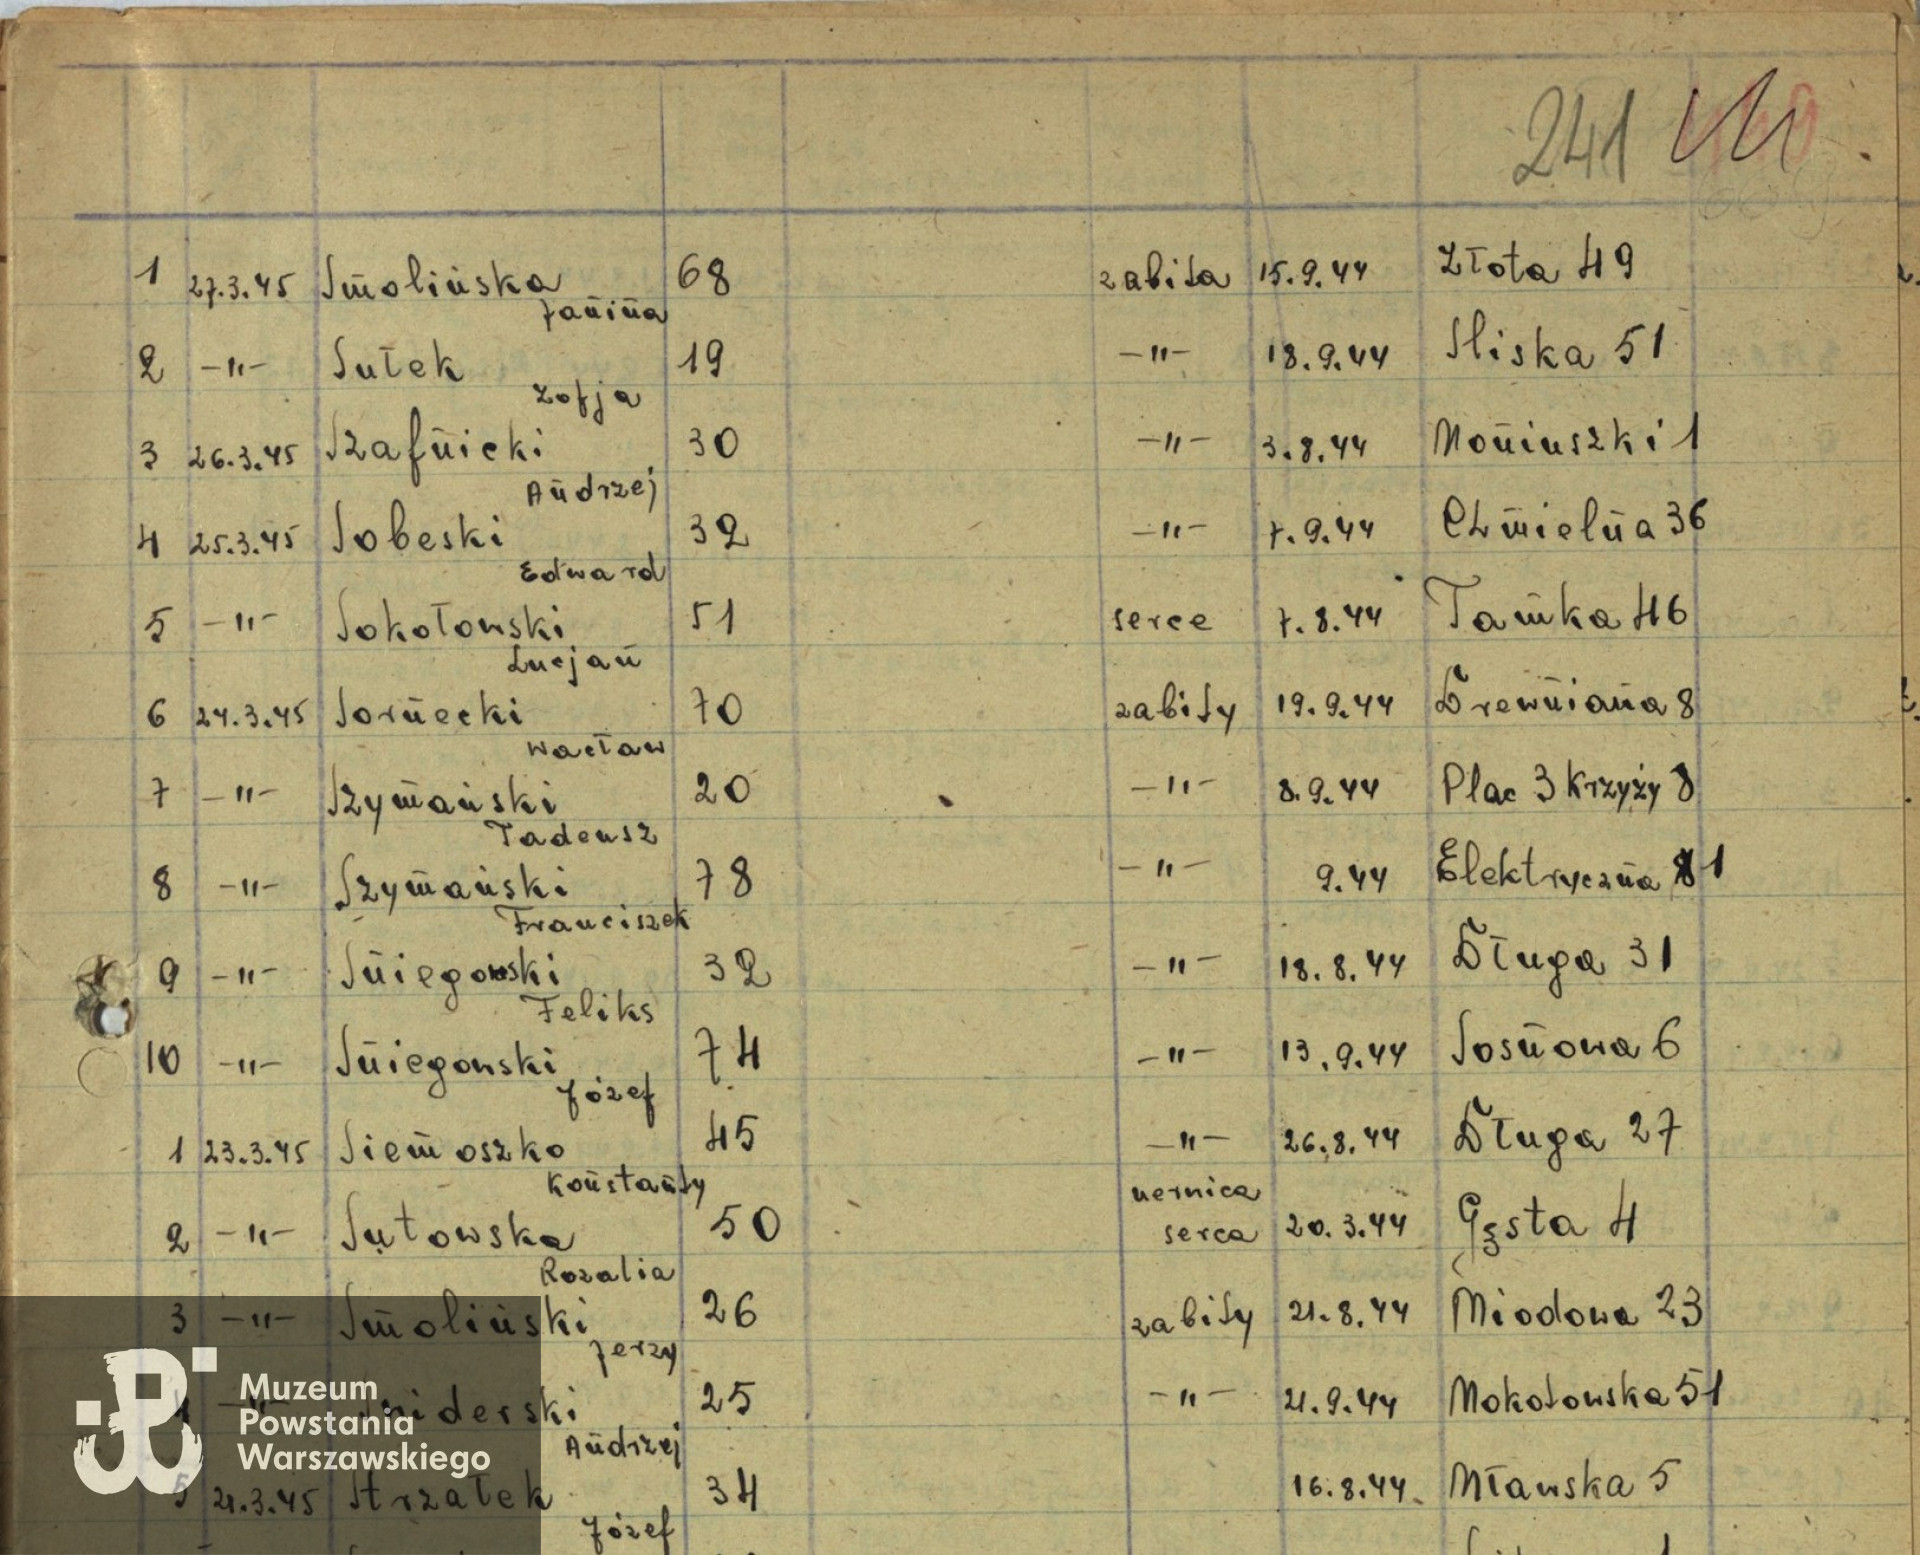 241
1 27.3.45 Smolińska 68 zabita 15.9.44 Złota 49
Janina
2 -"- Sułek 19 -"- 18.9.44 Sliska 51
Zofja
3 26.3.45 Szafnicki 30 -"- 3.8.44 Moniuszki 1
Andrzej
4 25.3.45 Sobeski 32 -"- 7.9.44 Chmielna 36
Edward
5 -"- Sokołowski 51 serce 7.8.44 Tamka 46
Lucjan
6 24.3.45 Sornecki 70 zabity 19.9.44 Drewniana 8
Wacław
7 -"- Szymański 20 -"- 8.9.44 Plac 3 Krzyży 8
Tadeusz
8 -"- Szymański 78 -"- 9.44 Elektryczna 1
Franciszek
9 -"- Sniegowski 32 -"- 18.8.44 Długa 31
Feliks
10 -"- Sniegowski 74 -"- 13.9.44 Sosnowa 6
Józef
1 23.3.45 Siemoszko 45 -"- 26.8.44 Długa 27
Konstanty nerwica
2 -"- Sutowska 50 serca 20.3.44 Gęsta 4
Rozalia
3 -"- Smoliński 26 zabity 21.8.44 Miodowa 23
Jerzy
-"- 25 -"- 21.9.44 Mokotowska 51
Andrzej
5 21.3.45 Strzałek 34 16.8.44 Mławska 5
Józef
Muzeum
Powstania
Warszawskiego